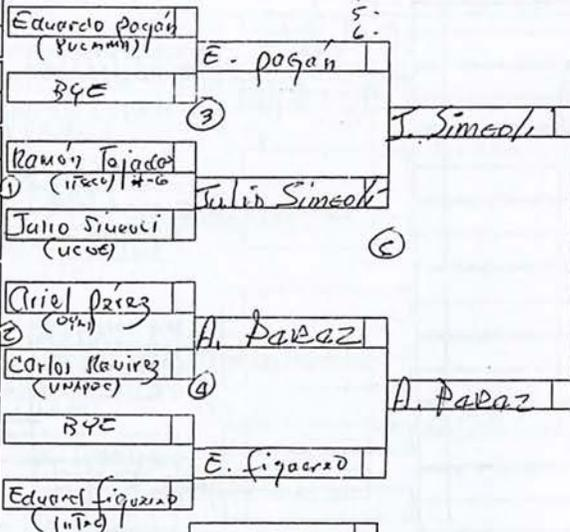 5.
6.
Eduardo Pagán
(PUCMMA)
E. pagán
BYE
3
J. Simeoli
Ramón Tejada
1
(INTEC) #-6
Julio Simeoli
Julio Simeoli
(UCNE)
C
Ariel Pérez
2
A. Paraz
Carlos Ramirez
(UNAPEC)
4
A. Paraz
BYE
E. figuereo
Eduard figuereo
(INTEC)